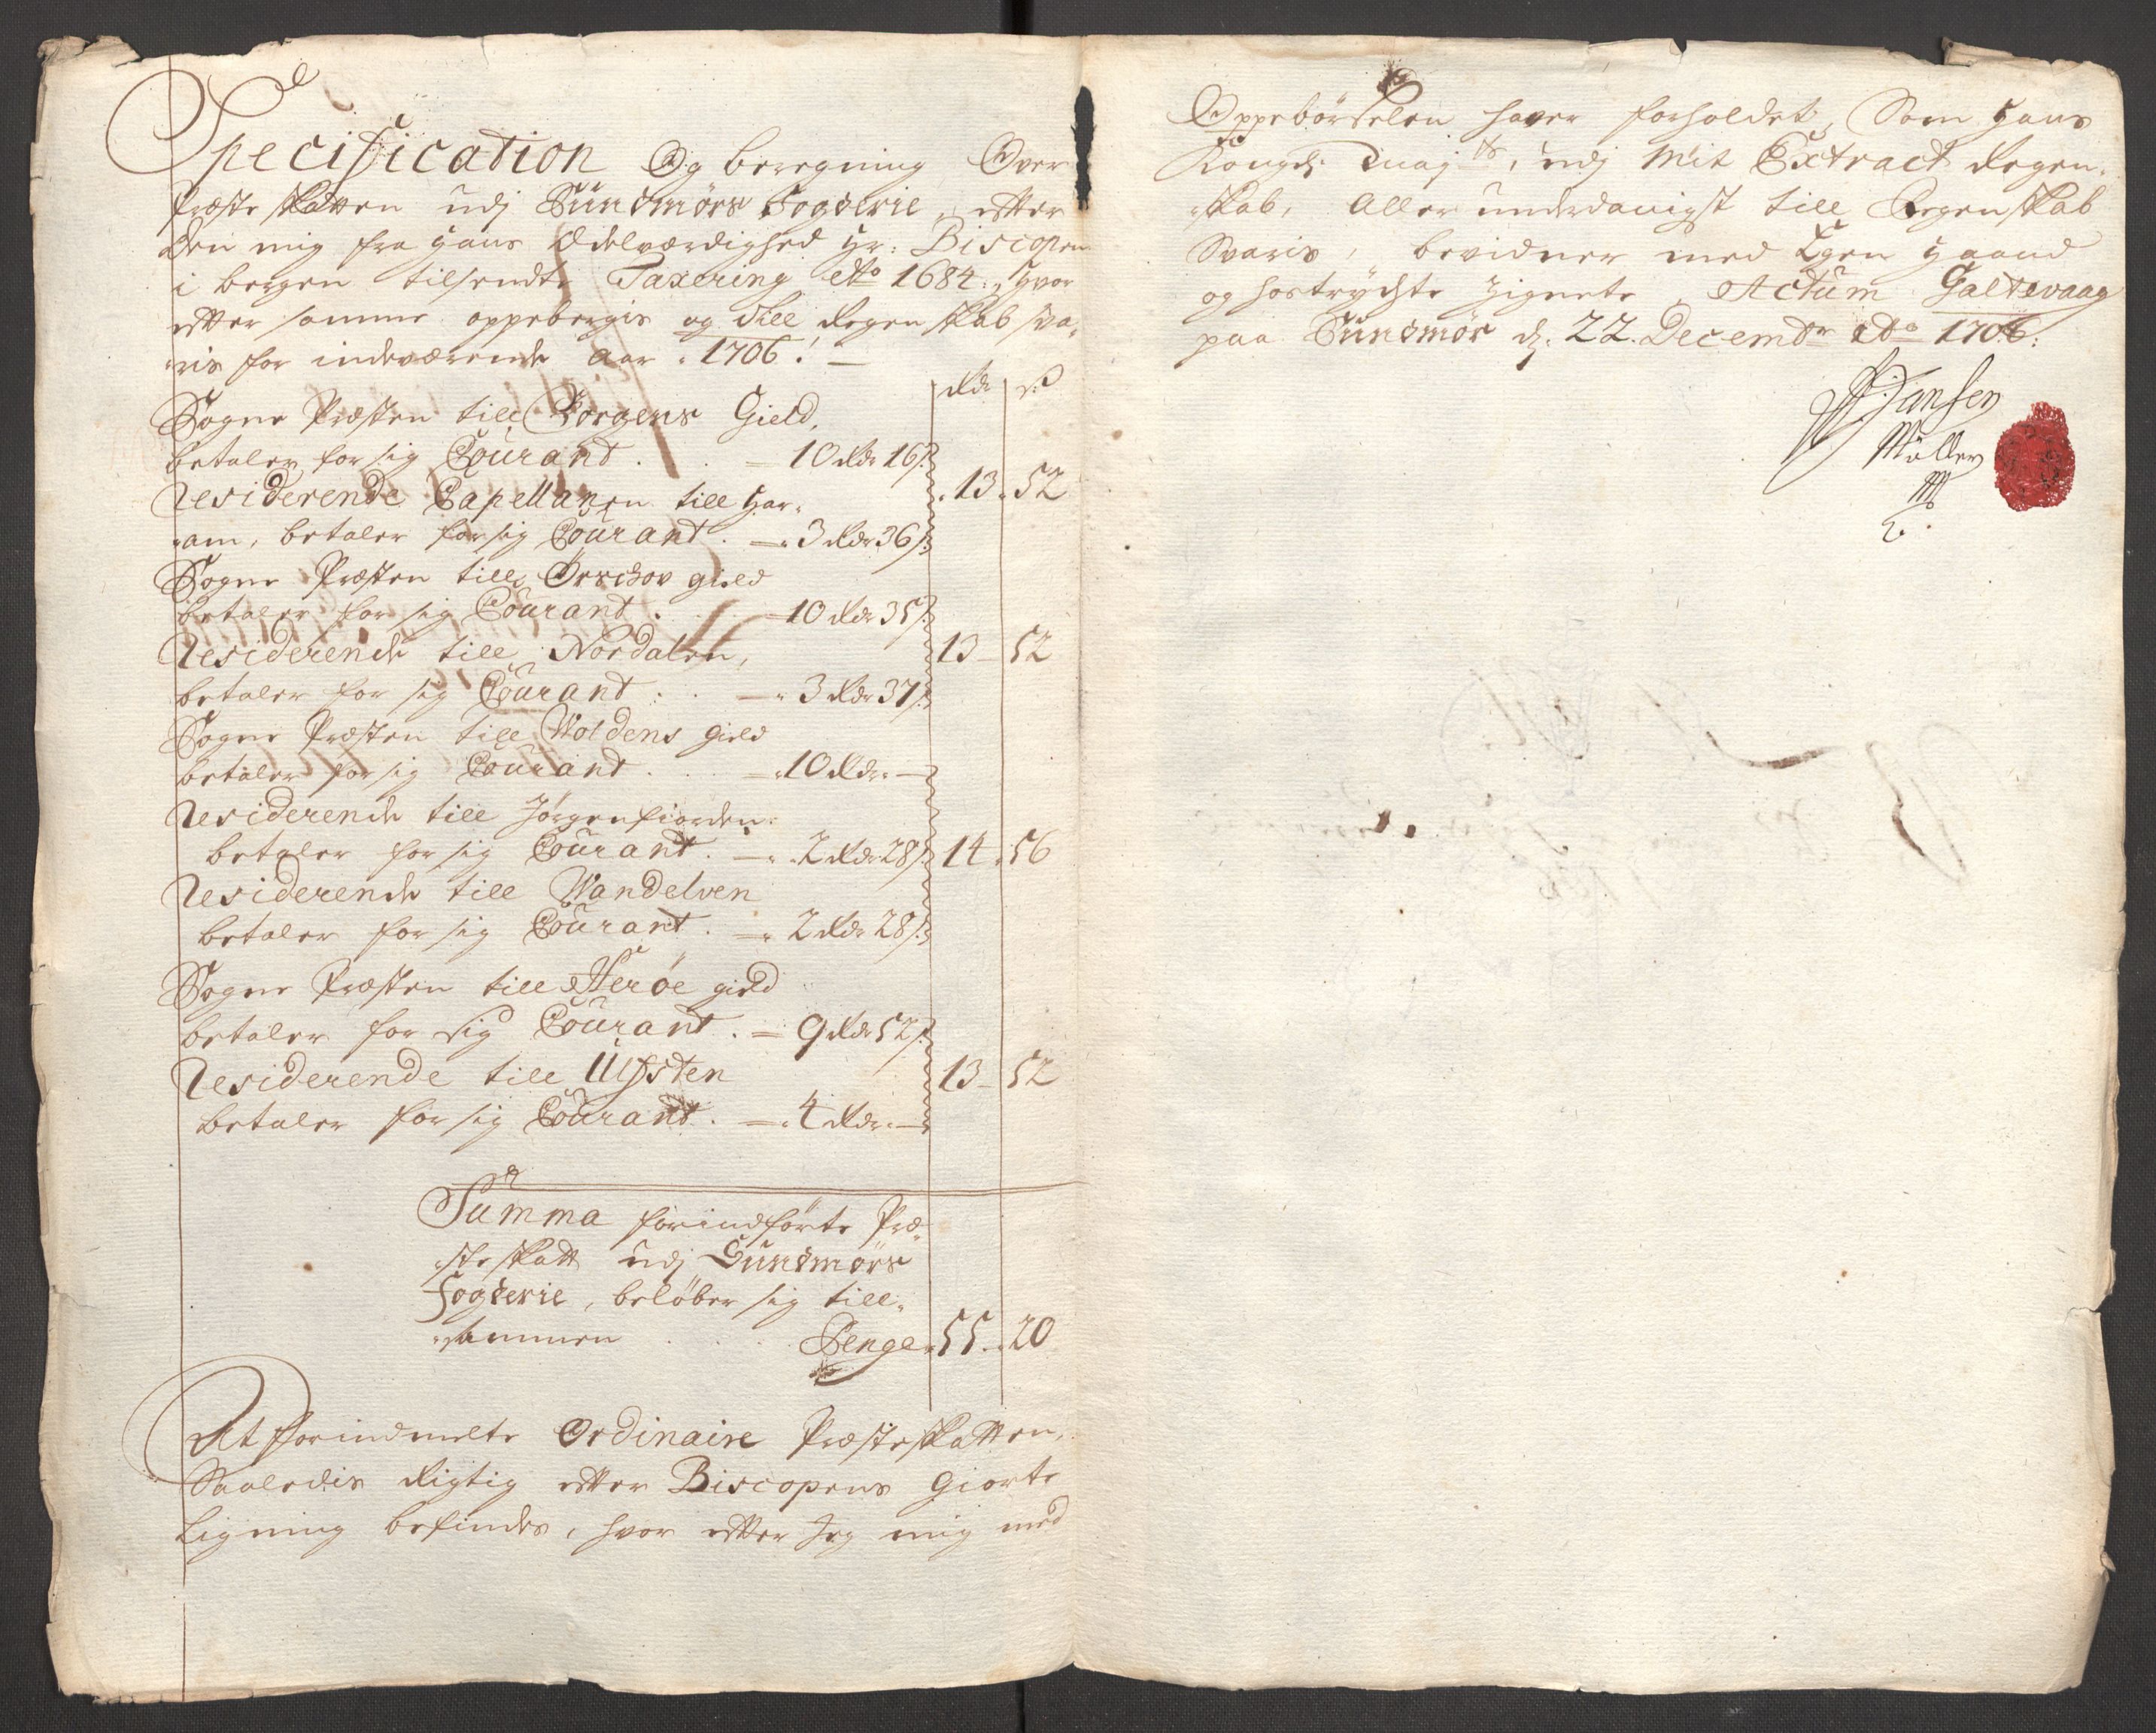 Specification Og beregning Over
Præste skatten udj Sundmørs Fogderie, efter
den mig fra hans Ædelværdighed Hr: Biscopen
i bergen tilsendte Taxering Ao 1684., Hvor
efter samme oppebergis og till Regenskab sva-
ris for indeværende Aar 1706. —
Rdr ß
Sogne Præsten till Borgens Gield,
betaler for sig Courant . . — 10 Rdr 16 ß
Residerende Capellanen till Har- 13 52
am, betaler for sig Courant. — 3 Rdr 36 ß
Sogne Præsten till Ørschov gield
betaler for sig Courant . . 10 Rdr 35 ß
Residerende till Nordalen, 13 52
betaler for sig Courant . . — 3 Rdr 37 ß
Sogne Præsten till Woldens gield
betaler for sig Courant . . — 10 Rdr —
Residerende till Jørgenfiorden
betaler for sig Courant. — 2 Rdr 28 ß 14 56
Residerende till Wandelven
betaler for sig Courant . — 2 Rdr 28 ß
Sogne Præsten till Herøe gield
betaler for sig Courant . — 9 Rdr 52 ß
Residerende till Ulfsten 13 52
betaler for sig Courant . — 4 Rdr —
Summa forindførte Præ-
steskatt udj Sundmørs
Fogderie, beløber sig till-
sammen . . . Penge 55 20
At forindmelte Ordinaire Præsteskatten,
Saaledis Rigtig efter Biscopens Giorte
Ligning befindes, hvor efter Jeg mig med
Oppebørselen haver forholdet, Som Hans
Kongl: Maj:ts, udj Mit Extract Regen-
skab, Aller underdanigst till Regenskab
Svaris, bevidner med Egen Haand
og hostrychte Zignete, Actum Galtevaag
paa Sundmør d. 22. Decembr Ao 1706.
Jansen
Møller